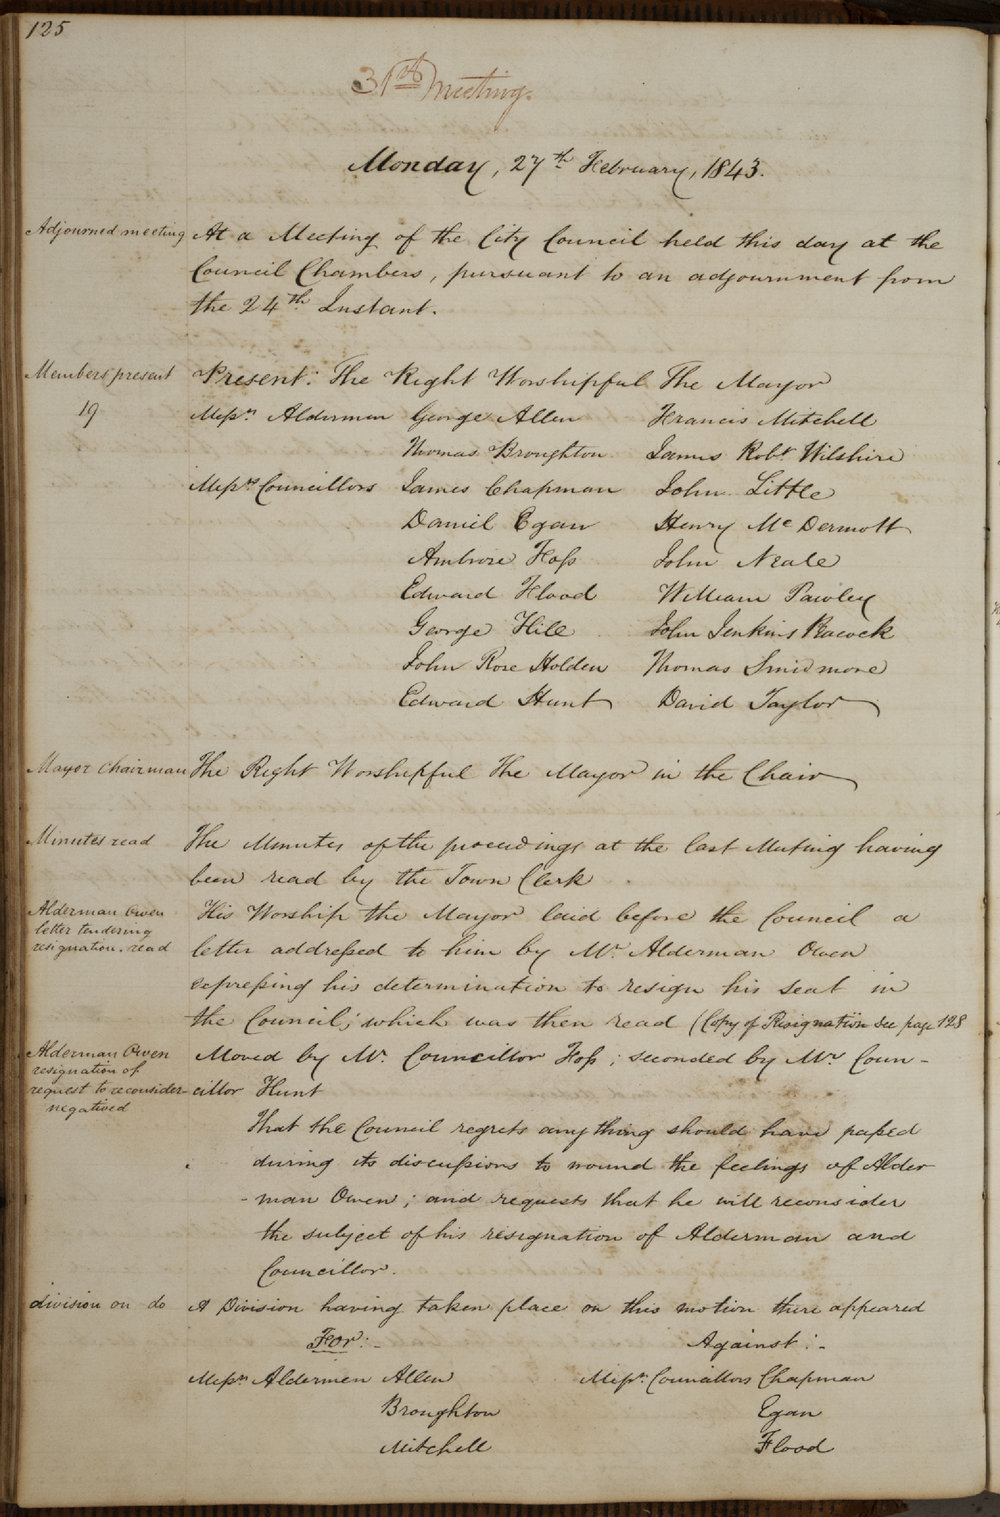 125
31st Meeting.
Monday, 27th February, 1843.
Adjourned meeting At a Meeting of the City Council held this day at the
Council Chambers, pursuant to an adjournment from
the 24th Instant.
Members present Present: The Right Worshipful The Mayor
19 Messrs Aldermen George Allen Francis Mitchell
Thomas Broughton James Robt Wilshire
Messrs Councillors James Chapman John Little
Daniel Egan Henry Mc Dermott
Ambrose Foss John Neale
Edward Flood William Pawley
George Hill John Jenkins Peacock
John Rose Holden Thomas Smidmore
Edward Hunt David Taylor
Mayor Chairman The Right Worshipful The Mayor in the Chair
Minutes read The Minutes of the proceedings at the last Meeting having
been read by the Town Clerk
Alderman Owen His Worship the Mayor laid before the Council a
letter tendering
resignation. read letter addressed to him by Mr. Alderman Owen
expressing his determination to resign his seat in
the Council; which was then read (Copy of Resignation see page 128
Alderman Owen Moved by Mr. Councillor Foss; seconded by Mr Coun-
resignation of
request to reconsider cillor Hunt
negatived
That the Council regrets any thing should have passed
during its discussions to wound the feelings of Alder
-man Owen; and requests that he will reconsider
the subject of his resignation of Alderman and
Councillor.
division on do A Division having taken place on this motion there appeared
For:- Against:-
Messrs Aldermen Allen Messrs Councillors Chapman
Broughton Egan
Mitchell Flood